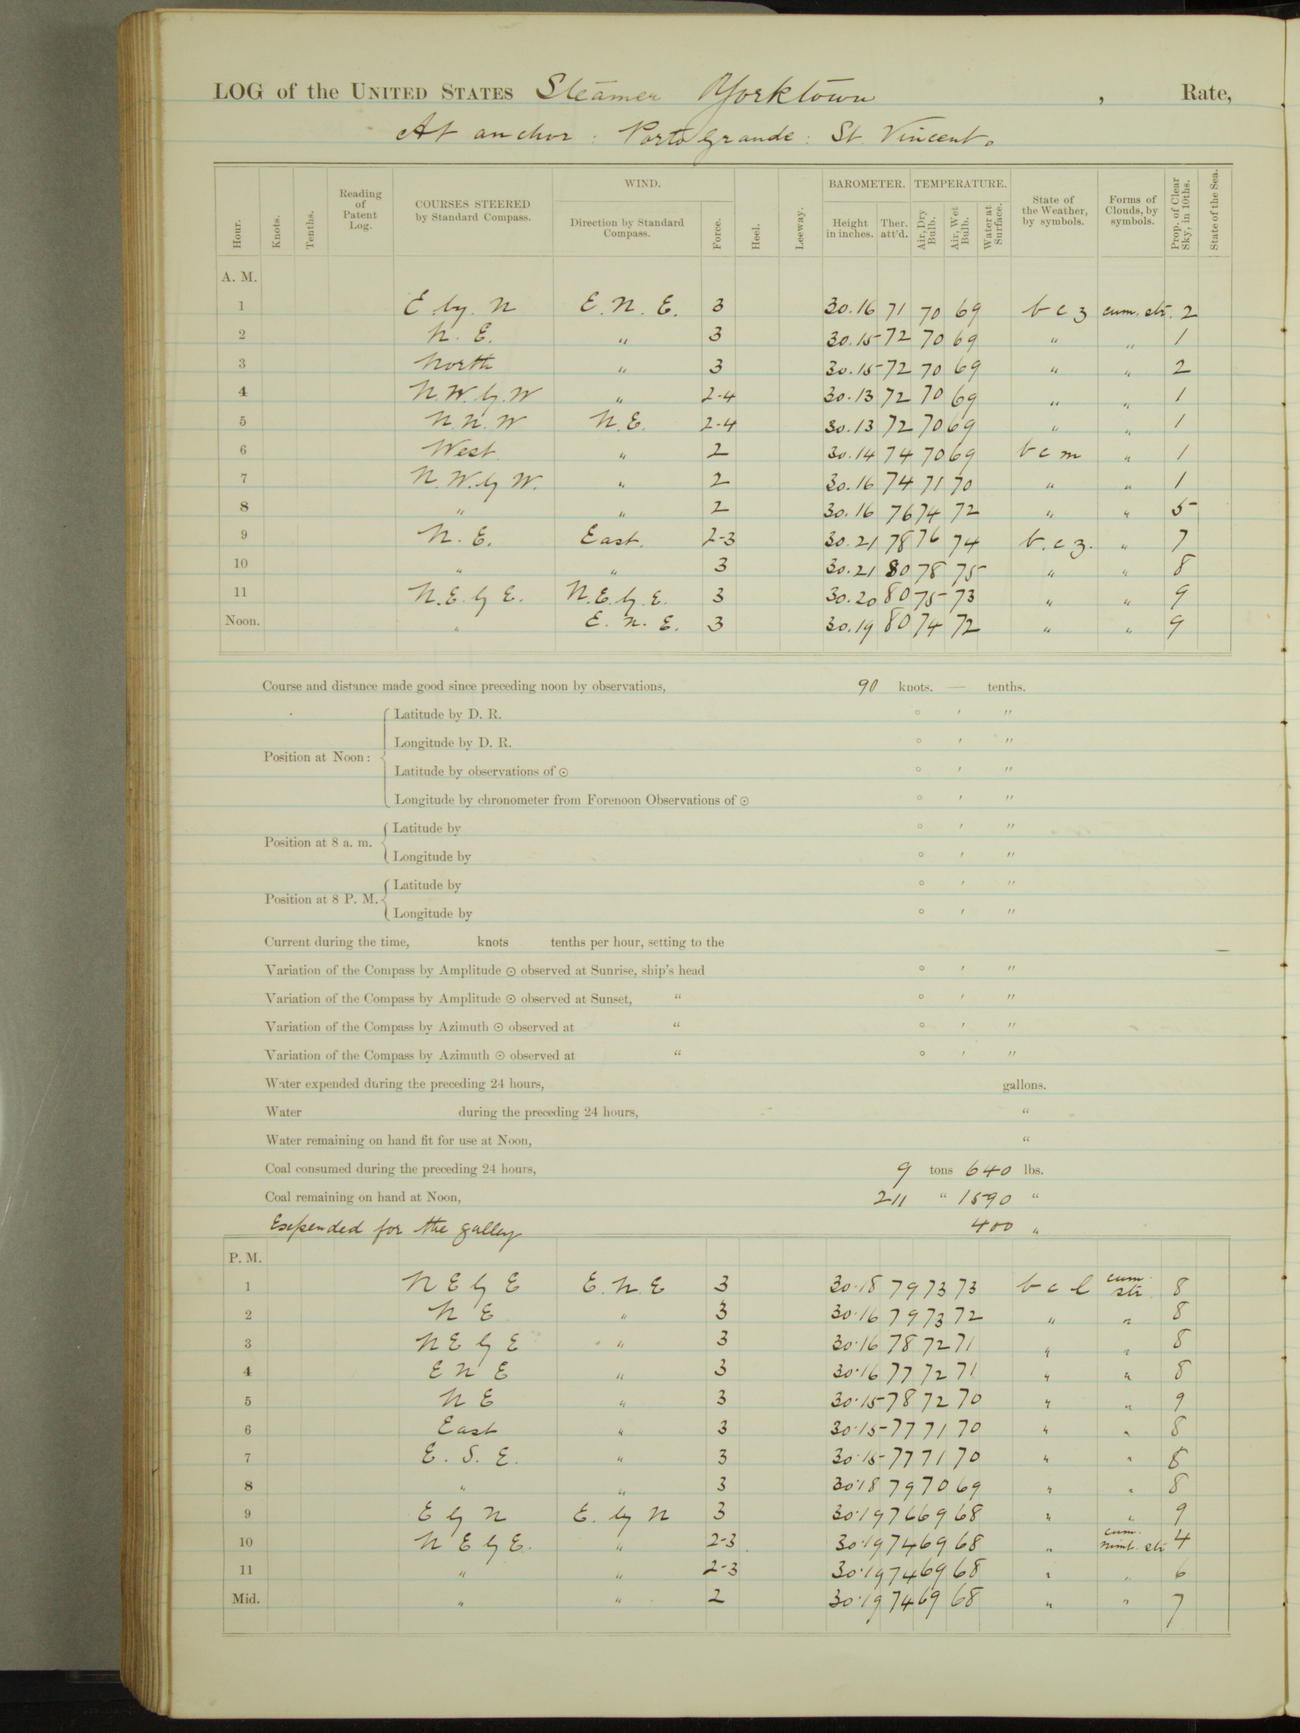 LOG of the UNITED STATES Steamer Yorktown , Rate,
At anchor : Porto Grande : St. Vincent.
Hour. Knots. Tenths. Reading of Patent Log. COURSES STEERED by Standard Compass. WIND. Direction by Standard Compass. Force. Heel. Leeway. BAROMETER. Height in inches. Ther. att'd. TEMPERATURE. Air, Dry Bulb. Air, Wet Bulb. Water at Surface. State of the Weather, by symbols. Forms of Clouds, by symbols. Prop. of Clear Sky, in 10ths. State of the Sea.
A. M.
1 E by. N E. N. E. 3 30.16 71 70 69 b c z cum. str. 2
2 N. E. " 3 30.15 72 70 69 " " 1
3 North " 3 30.15 72 70 69 " " 2
4 N.W. by. W " 2-4 30.13 72 70 69 " " 1
5 N. N. W N. E. 2-4 30.13 72 70 69 " " 1
6 West " 2 30.14 74 70 69 b c m " 1
7 N. W. by W. " 2 30.16 74 71 70 " " 1
8 " " 2 30.16 76 74 72 " " 5
9 N. E. East. 2-3 30.21 78 76 74 b. c. z. " 7
10 " " 3 30.21 80 78 75 " " 8
11 N. E. by E. N. E. by. E. 3 30.20 80 75 73 " " 9
Noon. " E. N. E. 3 30.19 80 74 72 " " 9
Course and distance made good since preceding noon by observations, 90 knots. — tenths.
Position at Noon: Latitude by D. R. ° ′ ″
Longitude by D. R. ° ′ ″
Latitude by observations of ☉ ° ′ ″
Longitude by chronometer from Forenoon Observations of ☉ ° ′ ″
Position at 8 a. m. Latitude by ° ′ ″
Longitude by ° ′ ″
Position at 8 P. M. Latitude by ° ′ ″
Longitude by ° ′ ″
Current during the time, knots tenths per hour, setting to the
Variation of the Compass by Amplitude ☉ observed at Sunrise, ship's head ° ′ ″
Variation of the Compass by Amplitude ☉ observed at Sunset, " ° ′ ″
Variation of the Compass by Azimuth ☉ observed at " ° ′ ″
Variation of the Compass by Azimuth ☉ observed at " ° ′ ″
Water expended during the preceding 24 hours, gallons.
Water during the preceding 24 hours, "
Water remaining on hand fit for use at Noon, "
Coal consumed during the preceding 24 hours, 9 tons 640 lbs.
Coal remaining on hand at Noon, 211 " 1590 "
Expended for the galley 400 "
P. M.
1 N E by E E. N. E 3 30.18 79 73 73 b c l cum. str. 8
2 N E " 3 30.16 79 73 72 " " 8
3 N E by E " 3 30.16 78 72 71 " " 8
4 E N E " 3 30.16 77 72 71 " " 8
5 N E " 3 30.15 78 72 70 " " 9
6 East " 3 30.15 77 71 70 " " 8
7 E. S. E. " 3 30.15 77 71 70 " " 8
8 " " 3 30.18 79 70 69 " " 8
9 E by N E. by N 3 30.19 76 69 68 " " 9
10 N E by E. " 2-3 30.19 74 69 68 " cum. nimb. str 4
11 " " 2-3 30.19 74 69 68 " " 6
Mid. " " 2 30.19 74 69 68 " " 7